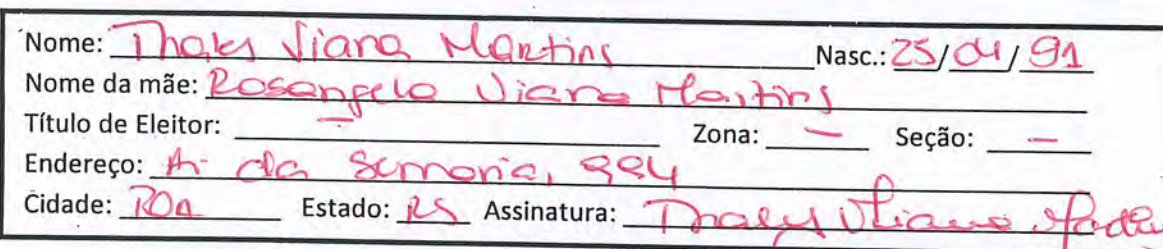 Nome: Thales Viana Martins Nasc.: 25/04/91
Nome da mãe: Rosangela Viana Martins
Título de Eleitor: — Zona: — Seção: —
Endereço: Av da Semaria, 994
Cidade: POA Estado: RS Assinatura: Thales Viana